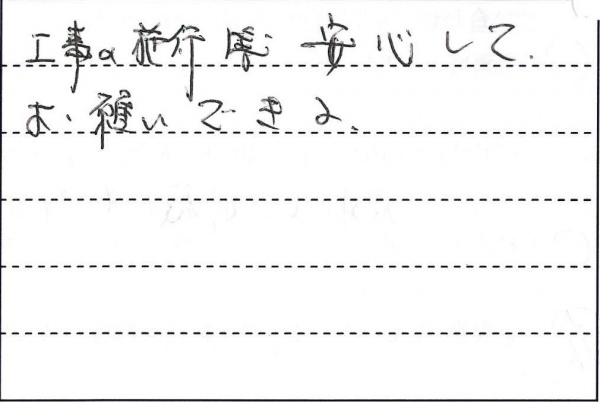 工事の施行 安心して
お できる。